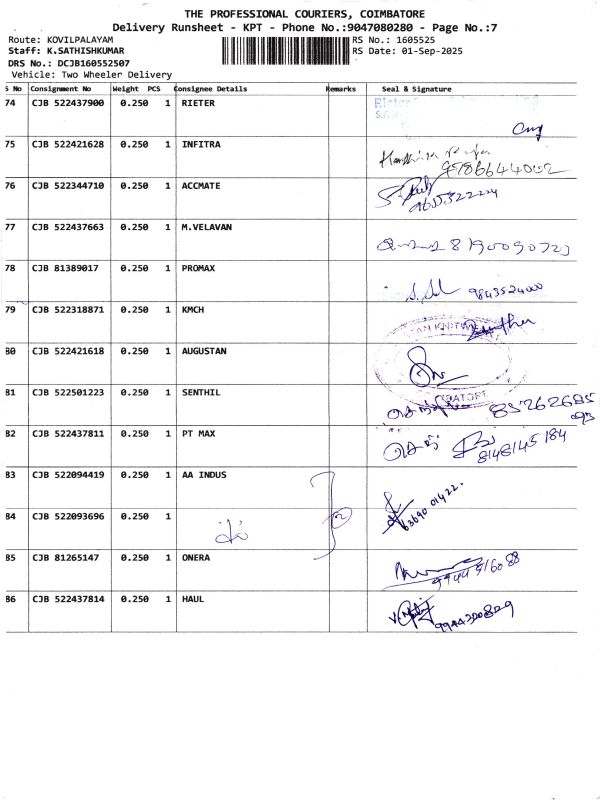 THE PROFESSIONAL COURIERS, COIMBATORE
Delivery Runsheet - KPT - Phone No.:9047080280 - Page No.:7
Route: KOVILPALAYAM RS No.: 1605525
Staff: K.SATHISHKUMAR RS Date: 01-Sep-2025
DRS No.: DCJB160552507
Vehicle: Two Wheeler Delivery
S No Consignment No Weight PCS Consignee Details Remarks Seal & Signature
74 CJB 522437900 0.250 1 RIETER Rieter
75 CJB 522421628 0.250 1 INFITRA 9786644002
76 CJB 522344710 0.250 1 ACCMATE
77 CJB 522437663 0.250 1 M.VELAVAN 8190090723
78 CJB 81389017 0.250 1 PROMAX 9843524000
79 CJB 522318871 0.250 1 KMCH
80 CJB 522421618 0.250 1 AUGUSTAN
81 CJB 522501223 0.250 1 SENTHIL
82 CJB 522437811 0.250 1 PT MAX 8148145184
83 CJB 522094419 0.250 1 AA INDUS 63690 01422
84 CJB 522093696 0.250 1 2
85 CJB 81265147 0.250 1 ONERA
86 CJB 522437814 0.250 1 HAUL